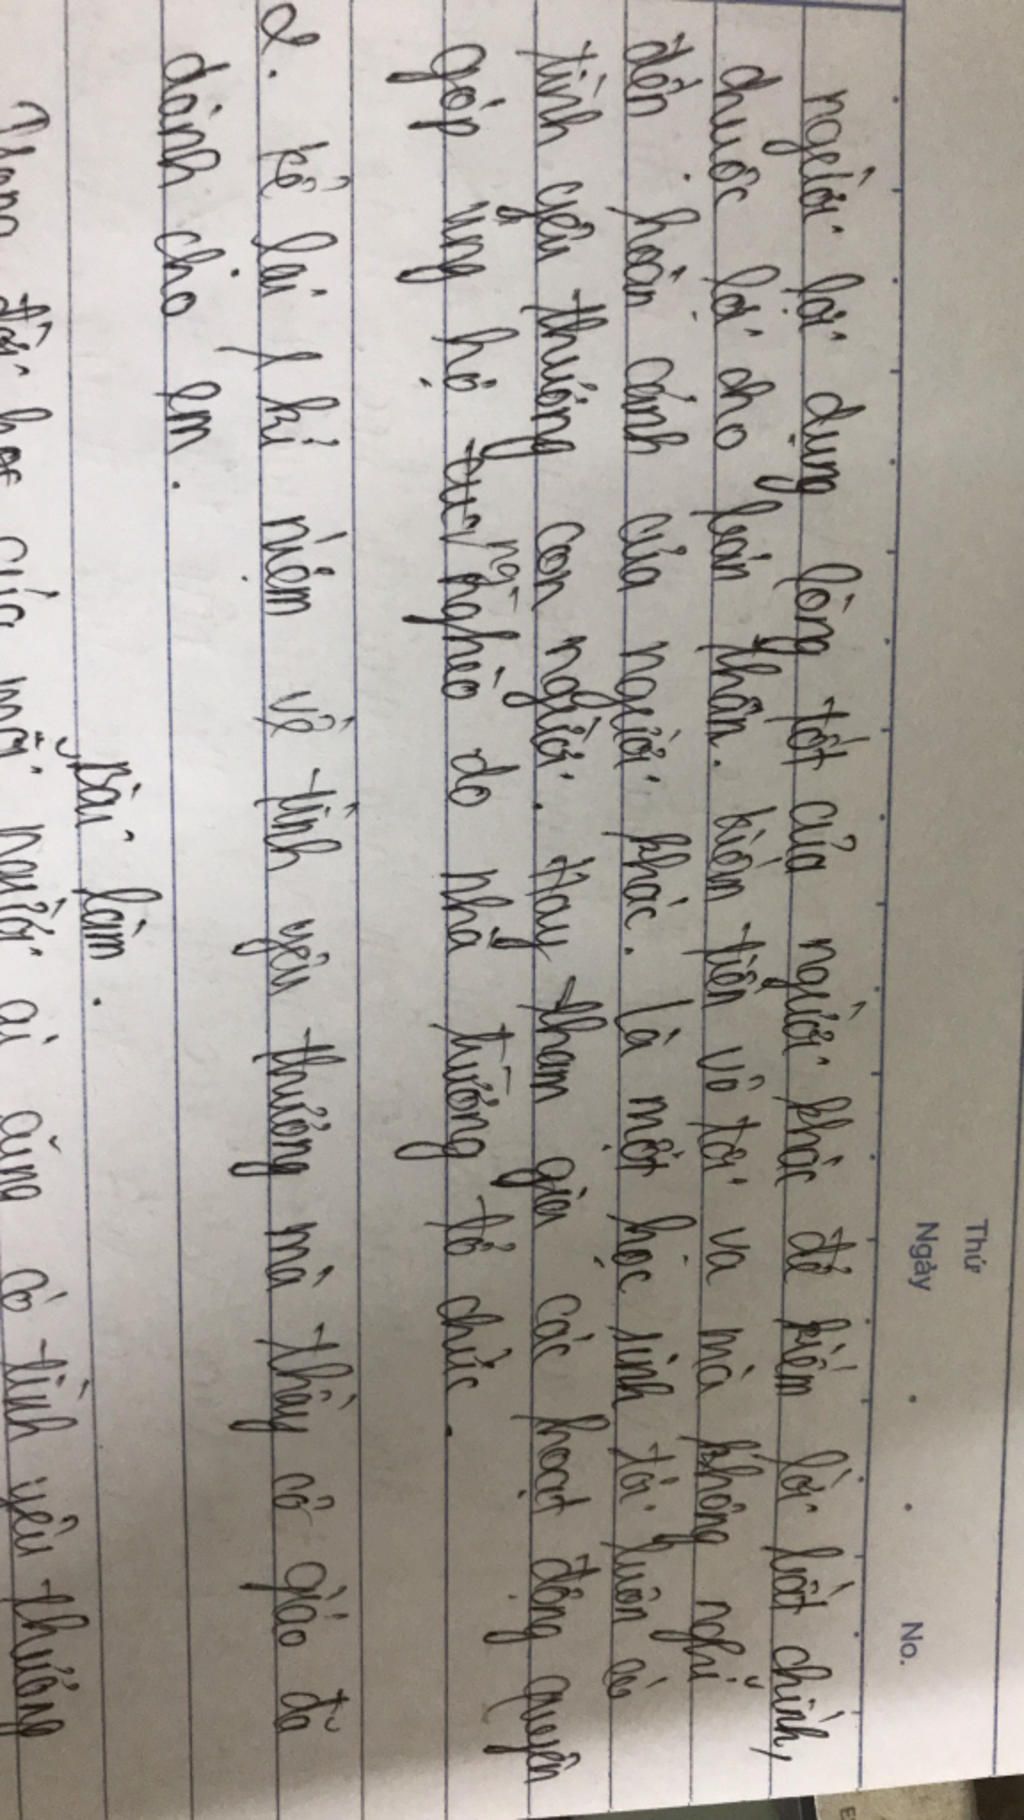 Thứ
Ngày
No.
người lợi dụng lòng tốt của người khác để kiếm lời bất chính,
chuộc lợi cho bản thân. kiếm tiền vô tội vạ mà không nghĩ
đến hoàn cảnh của người khác. Là một học sinh tôi luôn có
tình yêu thương con người. Hay tham gia các hoạt động quyên
góp ủng hộ người nghèo do nhà trường tổ chức.
2. kể lại 1 kỉ niệm về tình yêu thương mà thầy cô giáo đã
dành cho em.
Bài làm.
Trong đời học của mỗi người ai cũng có tình yêu thương